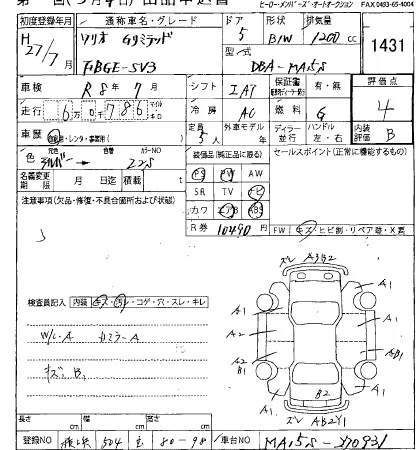 ヒーロー・メンバーズ・オートオークション FAX 0493-65-4004
初度登録年月 通称車名・グレード ドア 形状 排気量
H27/7 ソリオ Gリミテッド 5 B/W 1200 cc
型式
DBA-MA15S
1431
車検 R8年7月 シフト IAT 保証書 有・無 評価点
走行 6万0千786 冷房 AC 燃料 G 4
車歴 自家用・レンタ・事業用 定員 5人 外車モデル ディーラー 並行 ハンドル 左・右 内装評価 B
色 元色 シルバー→ 色替 カラーNO Z2S
装備品(純正品に限る) セールスポイント(正常に機能するもの)
名義変更期限 月 日迄 積載 t
PS PW AW
SR TV ナビ
カワ エアB ABS
R券 10490円
注意事項(欠品・修復・不具合箇所および状態)
FW キズ・ヒビ割・リペア跡・X無
検査員記入 内装 キズ・汚レ・コゲ・穴・スレ・キレ
W/L-A カミラーA
キズ B1
ズレ A3B2
A1 A1
A1 A1
A2 A1
A2 B1 AB1
A1 B2 A1
ズレ AB2Y1
長さ cm 幅 cm 高さ cm
登録NO 504 80-98 車台NO MA15S-